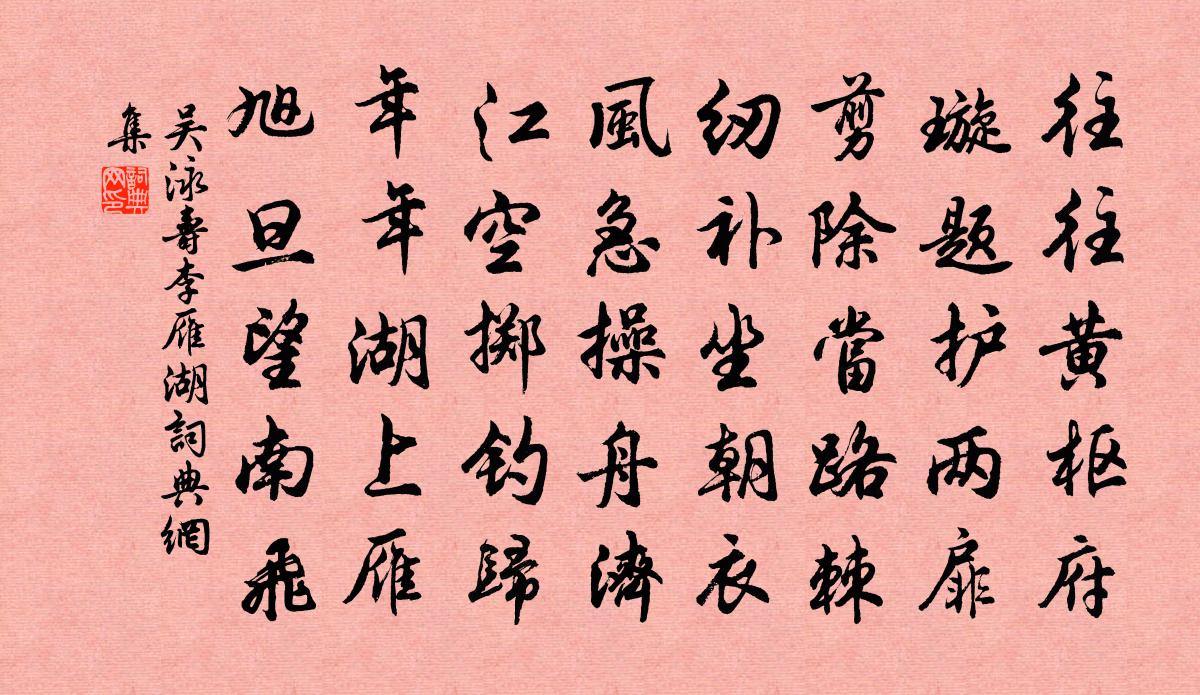 往往黄枢府
璇题护两扉
剪除當路棘
纫补坐朝衣
風急操舟濟
江空掷钓歸
年年湖上雁
旭旦望南飛
吴泳壽李雁湖詞典網
集
詞典
网印